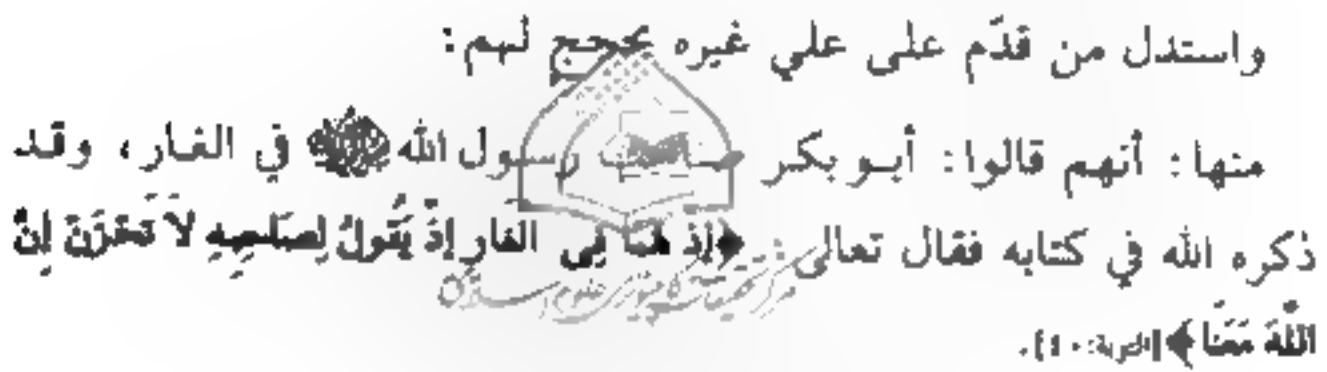 واستدل من قدّم على علي غيره بحجج لهم:
منها: أنهم قالوا: أبو بكر صاحب رسول الله ﷺ في الغار، وقد
ذكره الله في كتابه فقال تعالى: ﴿إِذْ هُمَا فِي الغَارِ إِذْ يَقُولُ لِصَاحِبِهِ لاَ تَحْزَنْ إِنَّ
اللَّهَ مَعَنَا﴾[التوبة:٤٠].
مركز تحقيقات كامپيوتری علوم اسلامی